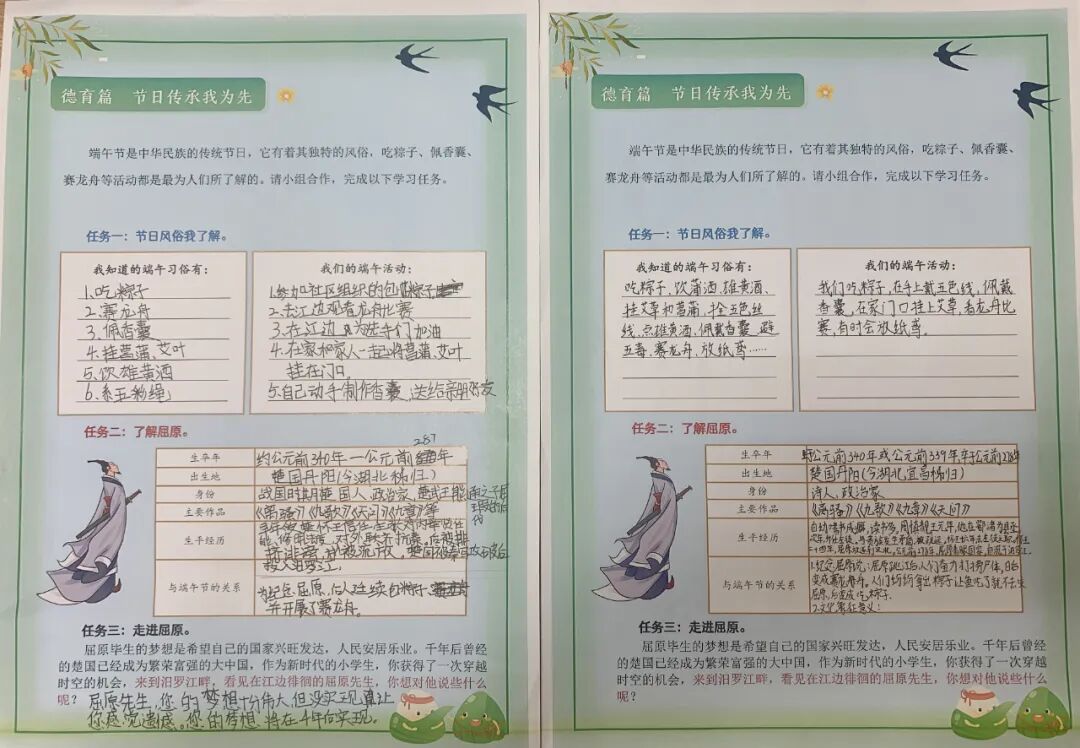 德育篇 节日传承我为先
端午节是中华民族的传统节日，它有着其独特的风俗，吃粽子、佩香囊、
赛龙舟等活动都是最为人们所了解的。请小组合作，完成以下学习任务。
任务一：节日风俗我了解。
我知道的端午习俗有：
1.吃粽子
2.赛龙舟
3.佩香囊
4.挂菖蒲、艾叶
5.饮雄黄酒
6.系五彩绳
我们的端午活动：
1.参加社区组织的包粽子
2.去江边观看龙舟比赛
3.在江边为选手们加油
4.在家和家人一起将菖蒲、艾叶
挂在门口
5.自己动手制作香囊,送给亲朋好友
任务二：了解屈原。
生卒年
约公元前340年—公元前 年
出生地
楚国丹阳(今湖北秭归)
身份
战国时期楚国人,政治家,
主要作品
《离骚》《九歌》《天问》《九章》等
生平经历
与端午节的关系
为纪念屈原,后人
并开展了赛龙舟。
任务三：走进屈原。
屈原毕生的梦想是希望自己的国家兴旺发达，人民安居乐业。千年后曾经
的楚国已经成为繁荣富强的大中国，作为新时代的小学生，你获得了一次穿越
时空的机会，来到汨罗江畔，看见在江边徘徊的屈原先生，你想对他说些什么
呢？
屈原先生,您的梦想十分伟大,但没实现真让
您感觉遗憾。您的梦想将在 年后实现。
德育篇 节日传承我为先
端午节是中华民族的传统节日，它有着其独特的风俗，吃粽子、佩香囊、
赛龙舟等活动都是最为人们所了解的。请小组合作，完成以下学习任务。
任务一：节日风俗我了解。
我知道的端午习俗有：
吃粽子,饮蒲酒、雄黄酒、
挂艾草和菖蒲,拴五色丝
线,点雄黄酒,佩戴香囊,避
五毒,赛龙舟,放纸鸢……
我们的端午活动：
我们吃粽子,在手上戴五色线,佩戴
香囊,在家门口挂上艾草,看龙舟比
赛,有时会放纸鸢。
任务二：了解屈原。
生卒年
公元前340年或公元前339年卒于公元前278年
出生地
楚国丹阳(今湖北宜昌秭归)
身份
诗人,政治家
主要作品
《离骚》《九歌》《九章》《天问》
生平经历
与端午节的关系
1.纪念屈原说:屈原跳江后人们奋力打捞尸体,日后
变成赛龙舟。人们纷纷拿出粽子让鱼吃了就不去吃
屈原,后变成吃粽子。
2.文化象征意义:
任务三：走进屈原。
屈原毕生的梦想是希望自己的国家兴旺发达，人民安居乐业。千年后曾经
的楚国已经成为繁荣富强的大中国，作为新时代的小学生，你获得了一次穿越
时空的机会，来到汨罗江畔，看见在江边徘徊的屈原先生，你想对他说些什么
呢？